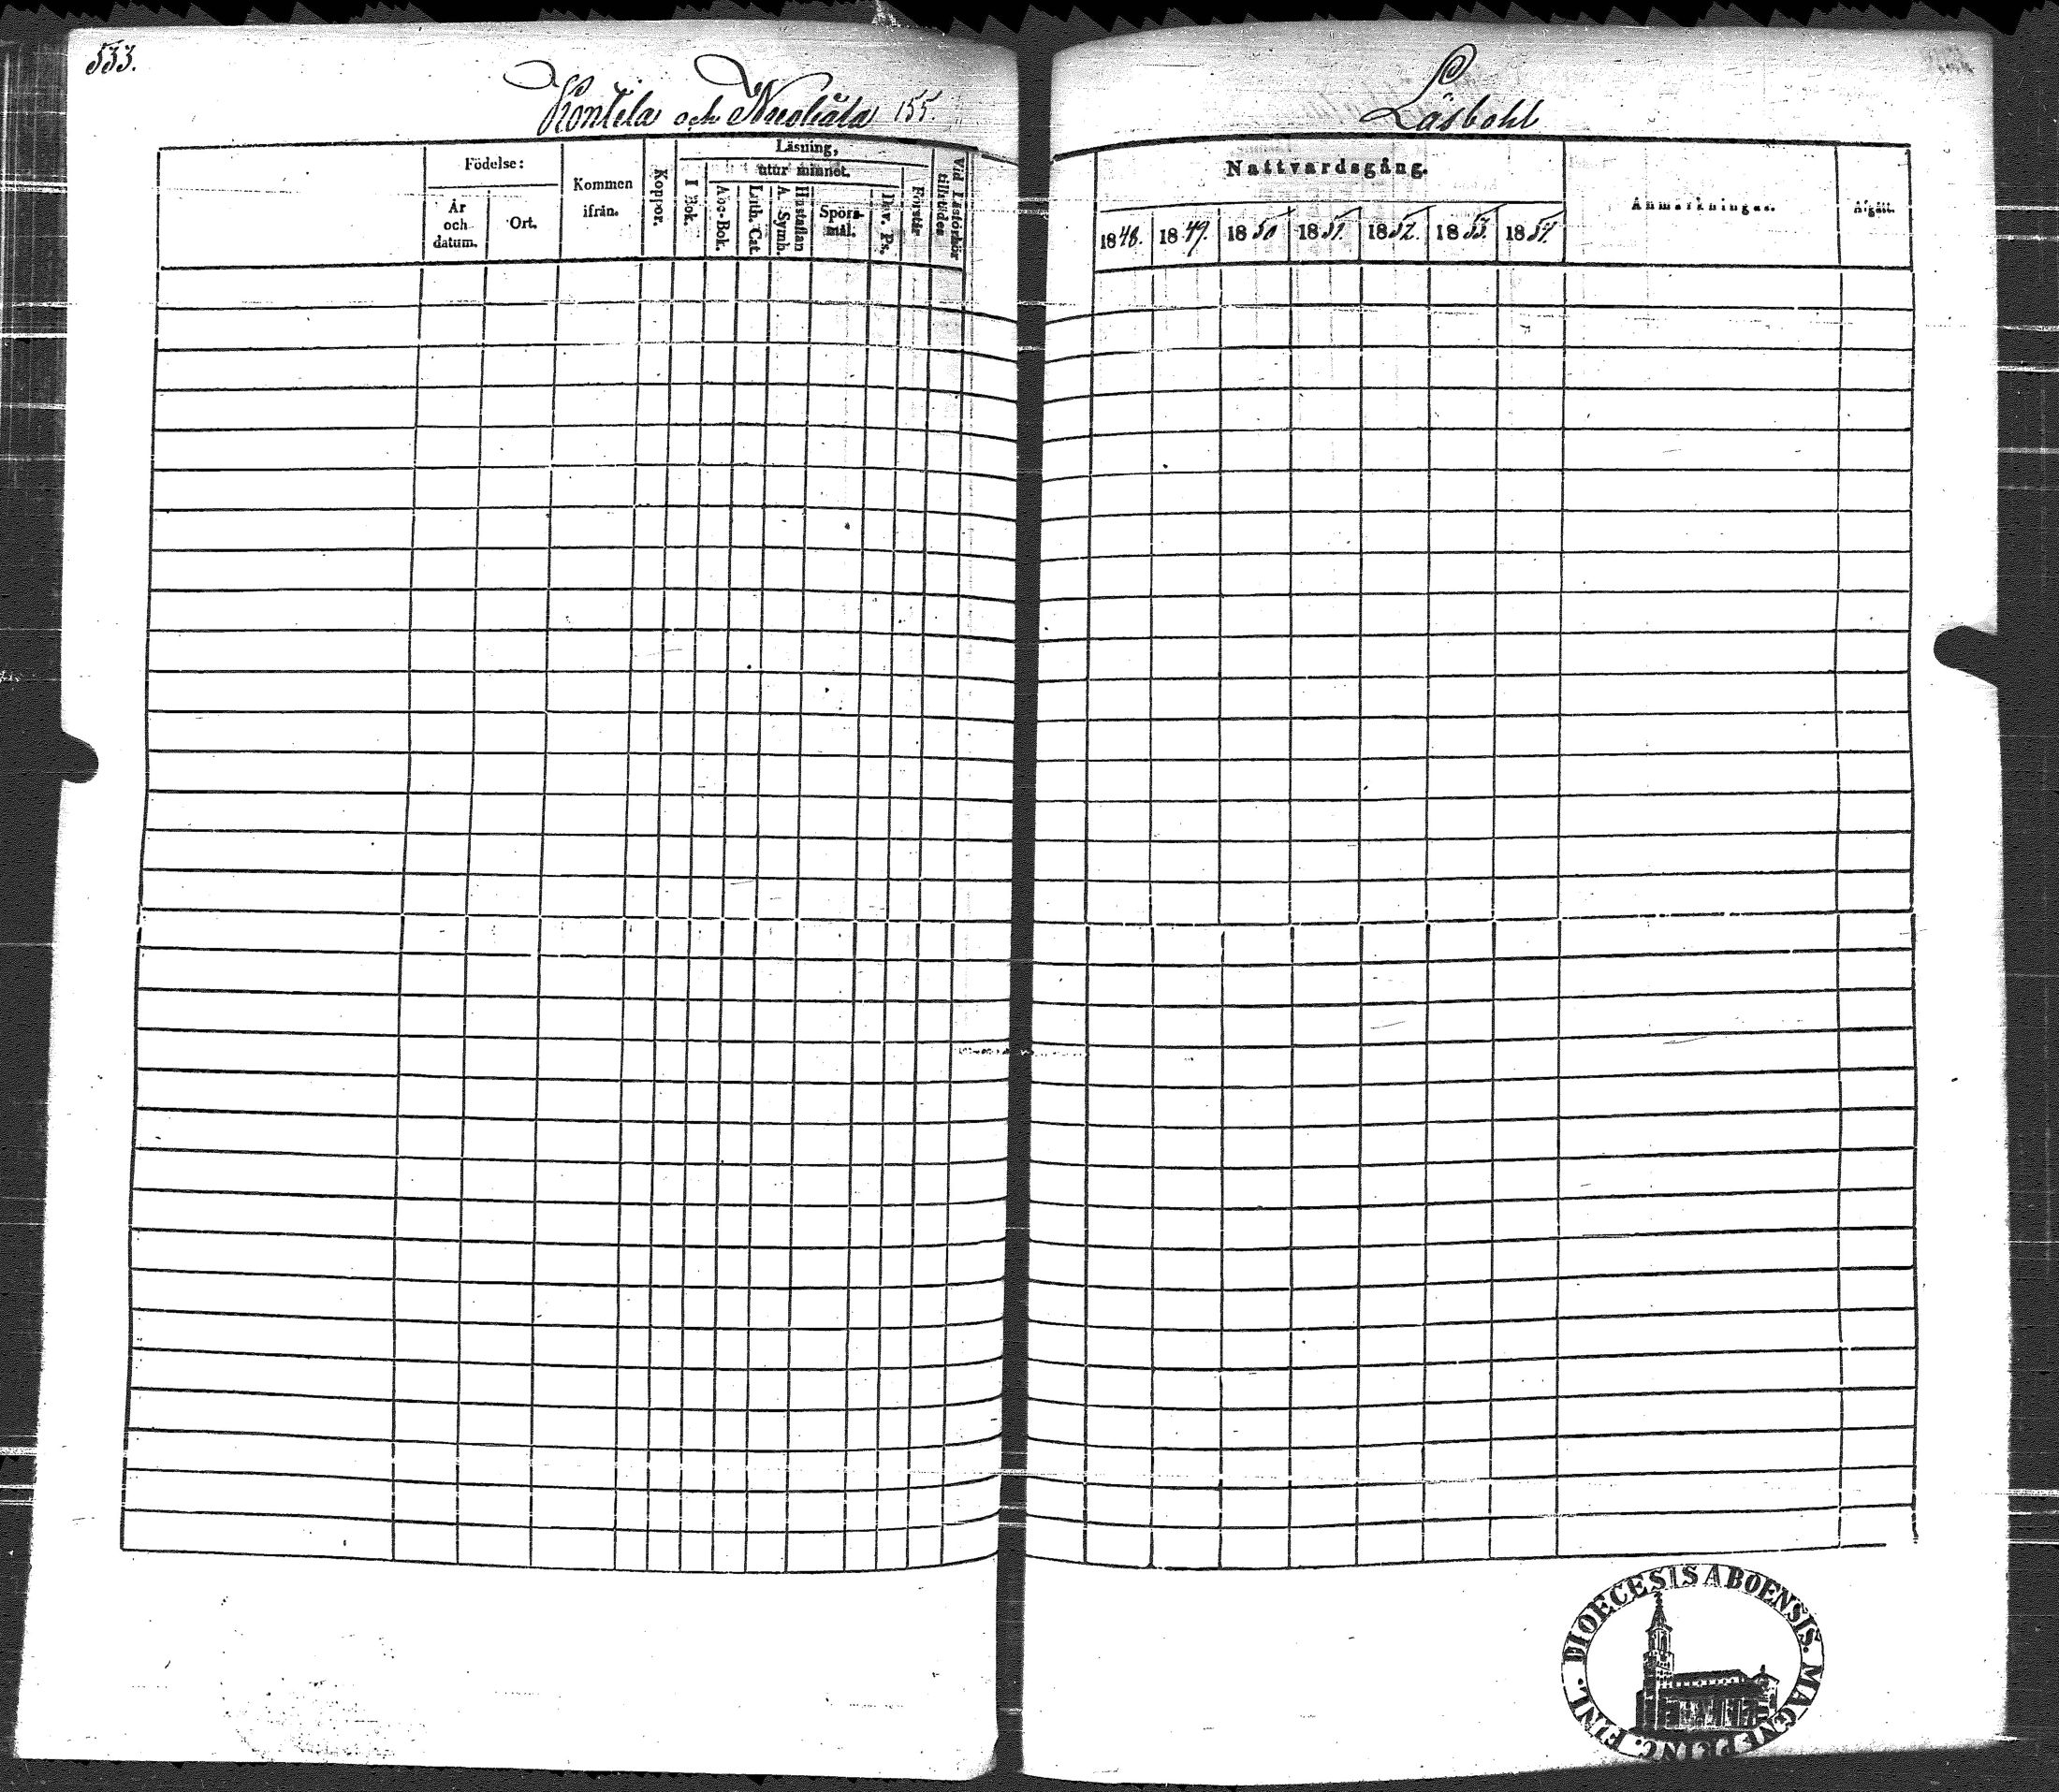 533.
Kontila och 155.
Läsbohl
Födelse:
År och datum.
Ort.
Kommen ifrån.
Koppor.
Läsning,
utur minnet.
I Bok.
Abc-Bok.
Luth. Cat.
Hustaflan A. Symb.
Spörsmål.
Dav. Ps.
Förstår
Vid Läsförhör tillstädes
Nattvardsgång.
1848.
1849.
1850
1851.
1852.
1853.
1854.
Anmärkningar.
Afgått.
DIOECESIS ABOENSIS. MAGNI PRINC. FINL.